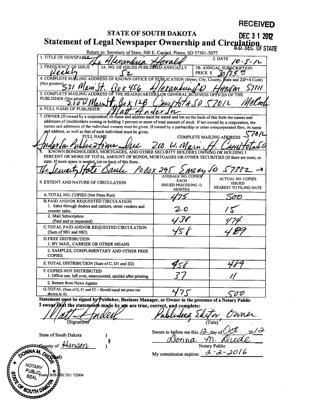 RECEIVED
DEC 31 2012
S.D. SEC. OF STATE
STATE OF SOUTH DAKOTA
Statement of Legal Newspaper Ownership and Circulation
Return to: Secretary of State, 500 E. Capitol, Pierre, SD 57501-5077
1. TITLE OF NEWSPAPER The Alexandria Herald
2. DATE 10-5-12
3. FREQUENCY OF ISSUE Weekly
3A. NO. OF ISSUES PUBLISHED ANNUALLY 52
3B. ANNUAL SUBSCRIPTION PRICE $
4. COMPLETE MAILING ADDRESS OF KNOWN OFFICE OF PUBLICATION (Street, City, County, State and ZIP+4 Code) (Not printers)
531 Main St. Box 456 Alexandria SD Hanson 57311
5. COMPLETE MAILING ADDRESS OF THE HEADQUARTERS OR GENERAL BUSINESS OFFICES OF THE PUBLISHER (Not printers)
210 W Main Box 128 Canistota SD 57012 McCook
6. FULL NAME OF PUBLISHER: Matt Anderson
7. OWNER (If owned by a corporation, its name and address must be stated and
FULL NAME
COMPLETE MAILING ADDRESS
Anderson Publications Inc 210 W. Main Canistota SD 57012
8. KNOWN BONDHOLDERS, MORTGAGEES, AND OTHER SECURITY HOLDERS OWNING OR HOLDING 1 PERCENT OR MORE OF TOTAL AMOUNT OF BONDS, MORTGAGES OR OTHER SECURITIES (If there are none, so state. If more space is needed, list on back of this form.)
The Security State Bank PO Box 245 Emery SD 57332
9. EXTENT AND NATURE OF CIRCULATION
AVERAGE NO. COPIES EACH ISSUED PRECEDING 12 MONTHS
ACTUAL NO. COPIES ISSUED NEAREST TO FILING DATE
A. TOTAL NO. COPIES (Net Press Run) 475 500
B. PAID AND/OR REQUESTED CIRCULATION
1. Sales through dealers and carriers, street vendors and counter sales. 20 15
2. Mail Subscription (Paid and or requested) 438 474
C. TOTAL PAID AND/OR REQUESTED CIRCULATION (Sum of 9B1 and 9B2) 458 489
D. FREE DISTRIBUTION
1. BY MAIL, CARRIER OR OTHER MEANS
2. SAMPLES, COMPLIMENTARY AND OTHER FREE COPIES
E. TOTAL DISTRIBUTION (Sum of C, D1 and D2) 458 489
F. COPIES NOT DISTRIBUTED
1. Office use, left over, unaccounted, spoiled after printing 37 11
2. Return from News Agents
G. TOTAL (Sum of E, F1 and F2 - Should equal net press run shown in A) 475 500
Statement must be signed by Publisher, Business Manager, or Owner in the presence of a Notary Public
I swear that the statements made by me are true, correct, and complete:
Publishing Editor Owner
(Signature)
(Title)
State of South Dakota )
County of Hanson )
Sworn to before me this 12 day of Oct 2012
Notary Public
My commission expires: 2-2-2016
DONNA M.
NOTARY PUBLIC
SEAL
SOUTH DAKOTA
7/2004